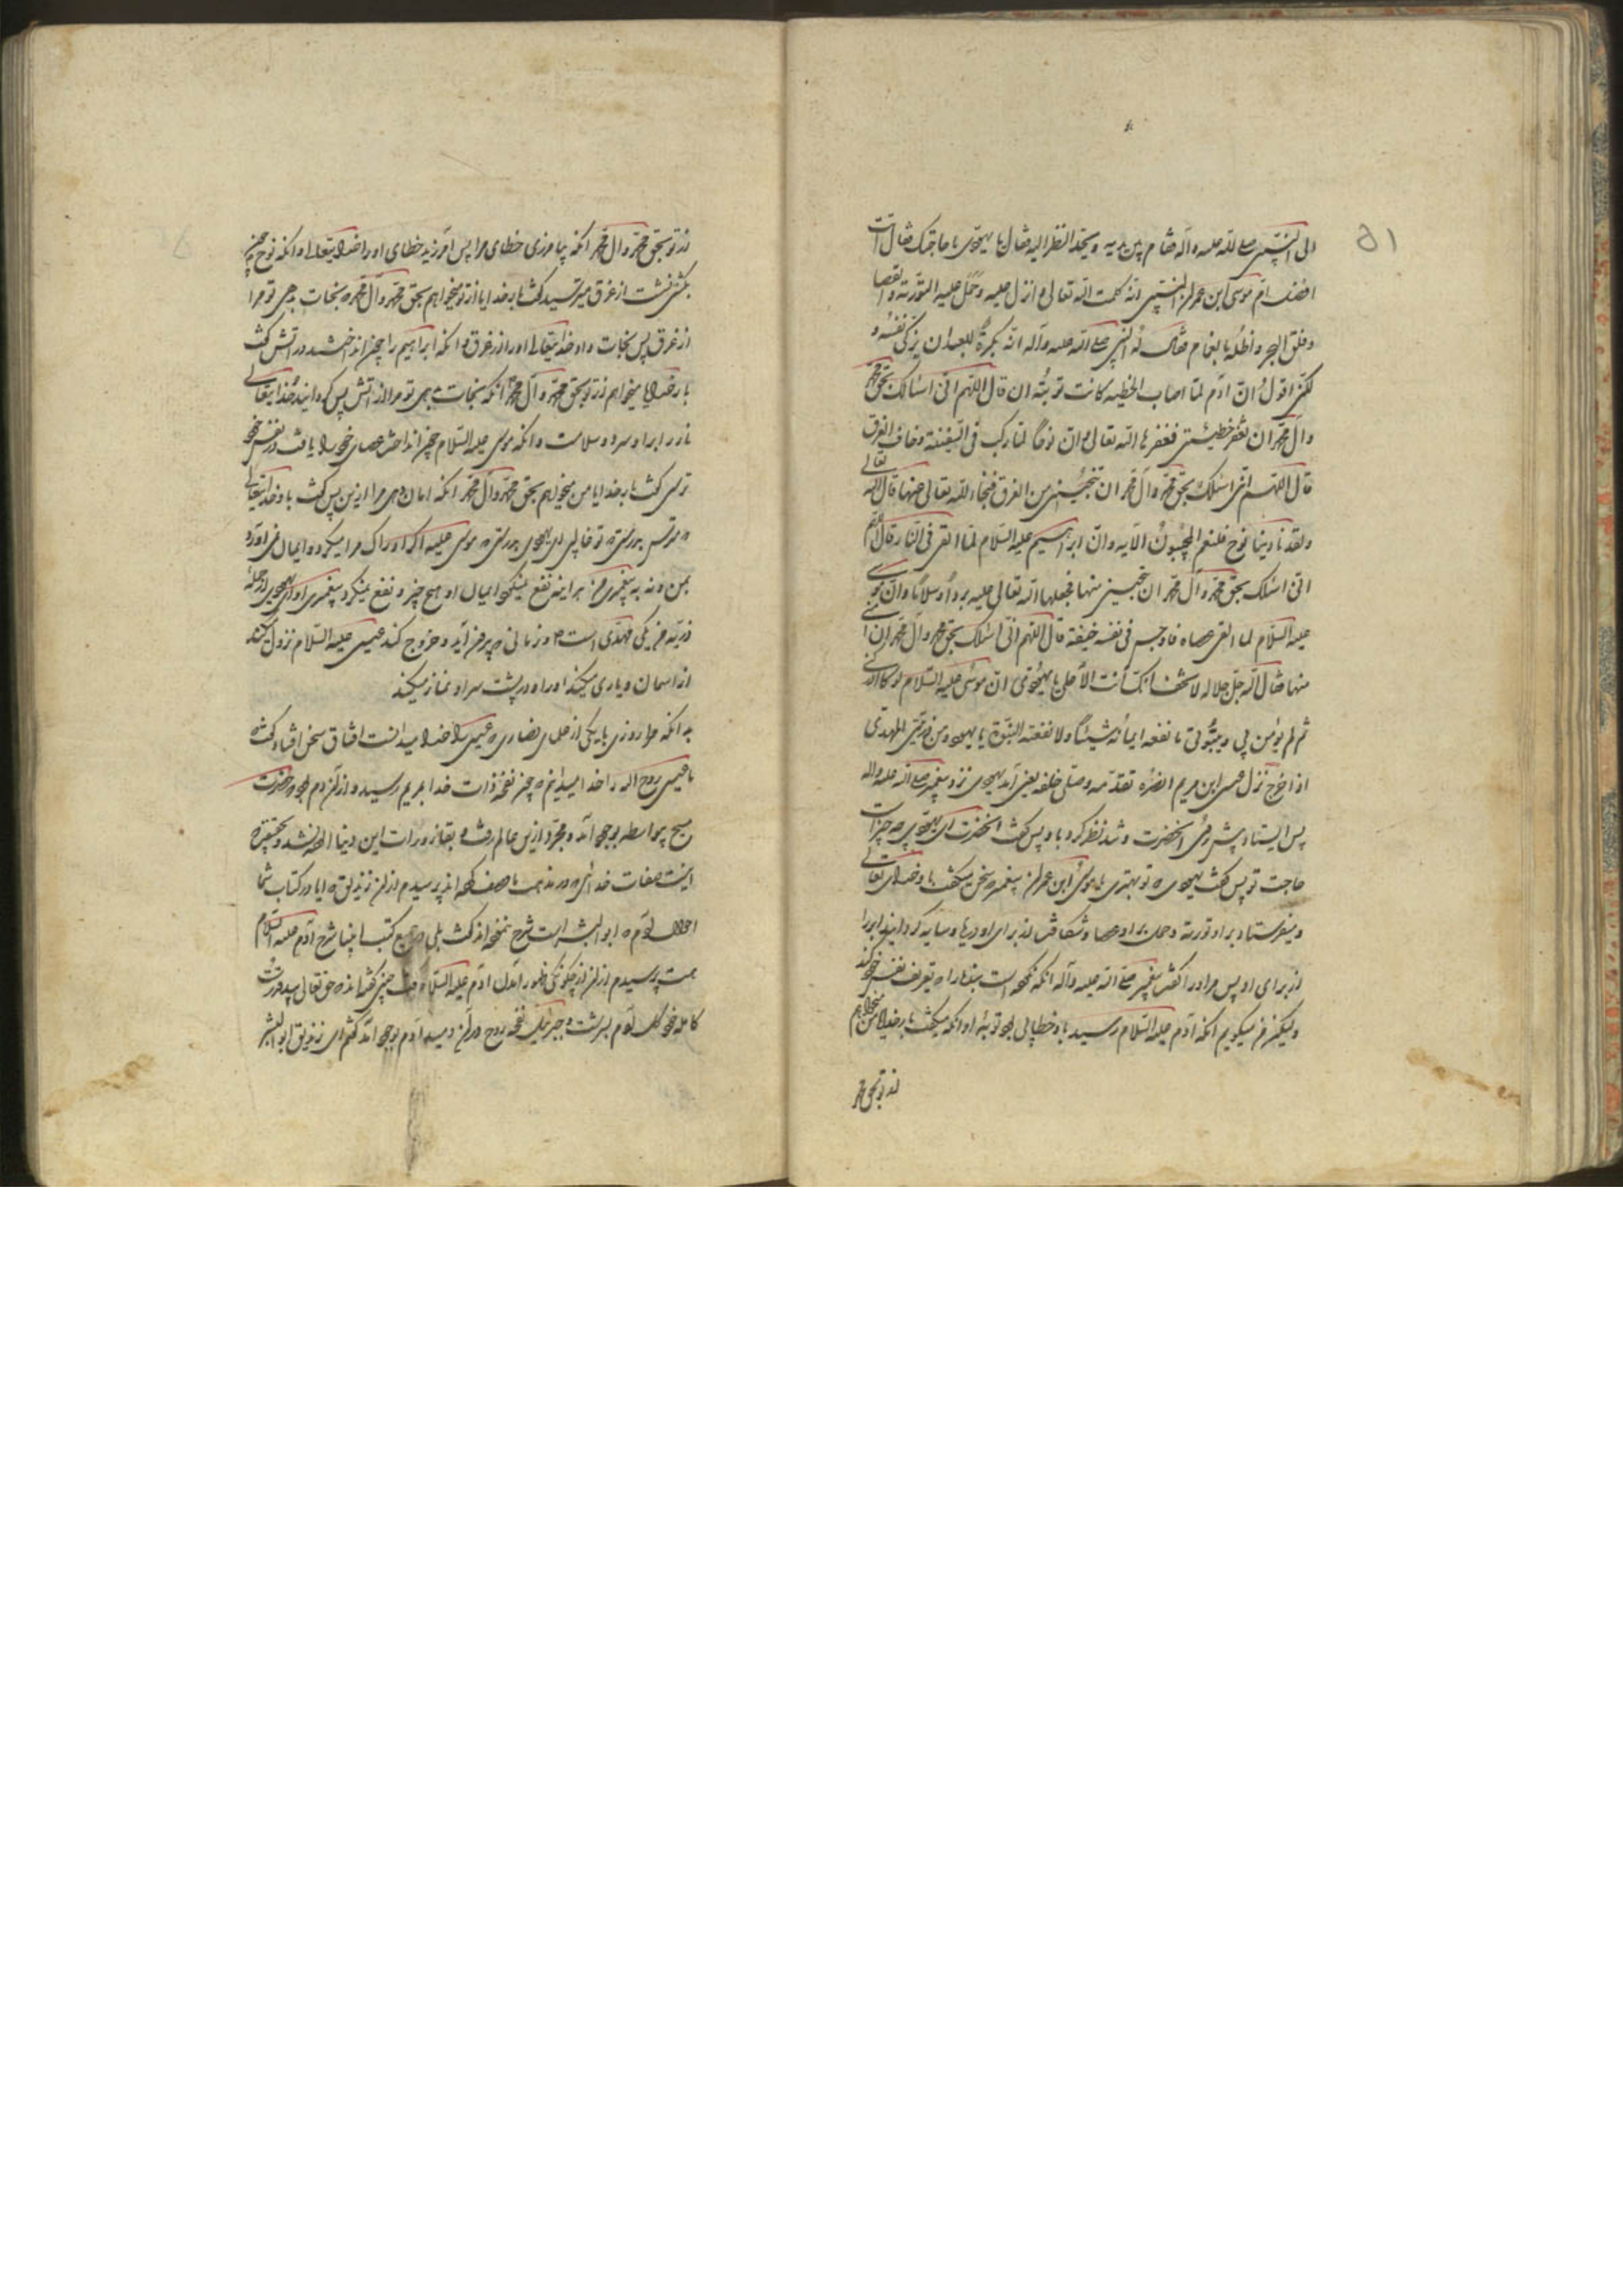 ۵۱
الی النبی صلی الله علیه وآله فقام بین یدیه ویحد النظر الیه فقال یا یهودی ما حاجتک فقال انت
افضل ام موسی ابن عمران النبی الذی کلمه الله تعالی و انزل علیه وحمل علیه التوریة والعصا
وفلق البحر واظله بالغمام فقال له النبی صلی الله علیه وآله انه یکره للعبد ان یزکی نفسه و
لکنی اقول ان آدم لما اصاب الخطیه کانت توبته ان قال اللهم انی اسالک بحق محمد
وآل محمد ان تغفر خطیئتی فغفرها الله تعالی وان نوحا لما رکب فی السفینة وخاف الغرق
قال اللهم انی اسئلک بحق محمد وآل محمد ان تنجینی من الغرق فنجاه الله تعالی عنها قال الله تعالی
ولقد نادینا نوح فلنعم المجیبون الآیه وان ابراهیم علیه السلام لما القی فی النار قال اللهم
انی اسئلک بحق محمد وآل محمد ان تنجینی منها فجعلها الله تعالی علیه بردا وسلاما وان موسی
علیه السلام لما القی عصاه فاوجس فی نفسه خیفة قال اللهم انی اسئلک بحق محمد وآل محمد ان
منها فقال الله جل جلاله لا تخف انک انت الاعلی یا یهودی ان موسی علیه السلام لو ادرکنی
ثم لم یؤمن بی وبنبوتی ما نفعه ایمانه شیئا ولا نفعته النبوة یا یهودی ومن ذریتی المهدی
اذا خرج نزل عیسی ابن مریم لنصره تقدمه وصلی خلفه یعنی آمد یهودی نزد پیغمبر صلی الله علیه وآله
پس ایستاد پیش روی آنحضرت و تند نظر کرد باو پس گفت آنحضرت ای یهودی چه چیز است
حاجت تو پس گفت یهودی که تو بهتری یا موسی ابن عمران پیغمبر که سخن میگفت باو خدای تعالی
و میفرستاد بر او توریة و حمل بر او عصا و شکافت از برای او دریا و سایه گردانید ابر را
از برای او پس مر او را گفت پیغمبر صلی الله علیه وآله آنکه مکروه است بنده را که تعریف نفس خود کند
ولیکن من میگویم آنکه آدم علیه السلام رسید باو خطایی بود توبه او آنکه میگفت بارخدایا من میخواهم
از تو بحق محمد
از تو بحق محمد وآل محمد آنکه بیامرزی خطای مرا پس آمرزید خطای او را خدایتعالی و آنکه نوح چون
بکشتی نشست از غرق میترسید گفت بارخدایا از تو میخواهم بحق محمد وآل محمد که نجات بدهی تو مرا
از غرق پس نجات داد خدایتعالی او را از غرق و آنکه ابراهیم را چون انداختند در آتش گفت
بارخدایا میخواهم از تو بحق محمد وآل محمد آنکه نجات دهی تو مرا از آتش پس گردانید خدایتعالی
نار را بر او سرد و سلامت و آنکه موسی علیه السلام چون انداخت عصای خود را یافت در نفس خود
ترسی گفت بارخدایا من میخواهم بحق محمد وآل محمد آنکه امان دهی مرا از این پس گفت باو خدایتعالی
که مترس بدرستی که تو غالبی ای یهودی بدرستی که موسی علیه السلام اگر ادراک مرا میکرد و ایمان نمی آورد
بمن و نه به پیغمبری من هر اینه نفع نمیکرد ایمان او هیچ چیز و نفع نمیکرد پیغمبری او ای یهودی از جمله
ذریه من یکی مهدی است که در زمانی که بیرون آید و خروج کند عیسی علیه السلام نزول کند
از آسمان و یاری میکند او را و در پشت سر او نماز میکند
بدانکه مرا روزی با یکی از علمای نصاری که عیسی را خدا میدانست اتفاق سخن افتاد گفت
ما عیسی روح الله را خدا میدانیم که چون نفخه ذات خدا بمریم رسید و از آن دم بوجود حضرت
مسیح بواسطه بوجود آمد و مجرد از این عالم رفت و بقاذورات این دنیا آلوده نشد و بحقیقت
اینست صفات خدائی که در مذهب ما وصف کرده اند پرسیدم از آن زندیق که ایا در کتاب شما
احوال آدم که ابوالبشر است شرح نموده اند گفت بلی در جمیع کتب انبیا شرح آدم علیه السلام
هست پرسیدم از آن از چگونگی ظهور آمدن آدم علیه السلام گفت چنین گفته اند که حق تعالی بید قدرت
کامله خود گل آدم بسرشت و جبرئیل نفخه روح در آن دمید آدم بوجود آمد گفتم ای زندیق ابوالبشر